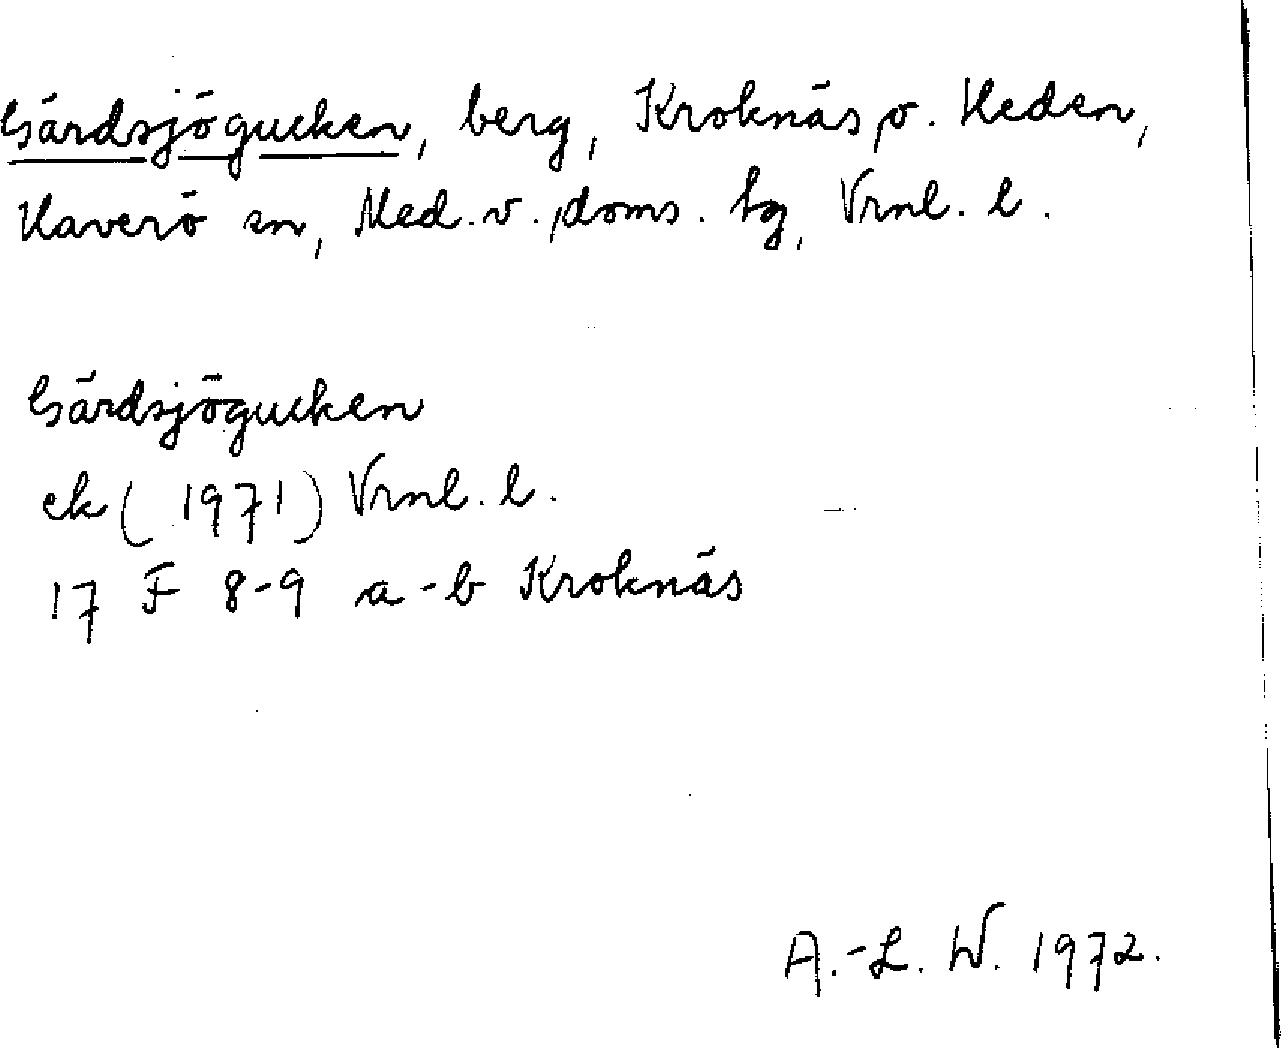 Gärdsjögucken, berg, Kroknäs o. Heden,
Haverö sn, Med. v. doms. tg, Vrnl. l.
Gärdsjögucken
ek (1971) Vrnl. l.
17 F 8-9 a-b Kroknäs
A.-L. W. 1972.